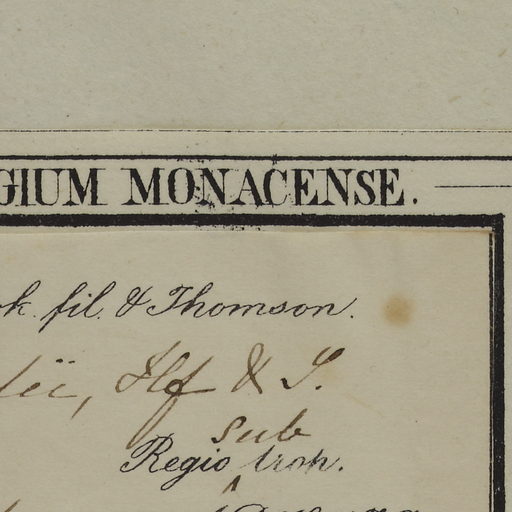 GIUM MONACENSE.
ok. fil. & Thomson.
Hf & T.
sub
Regio trop.